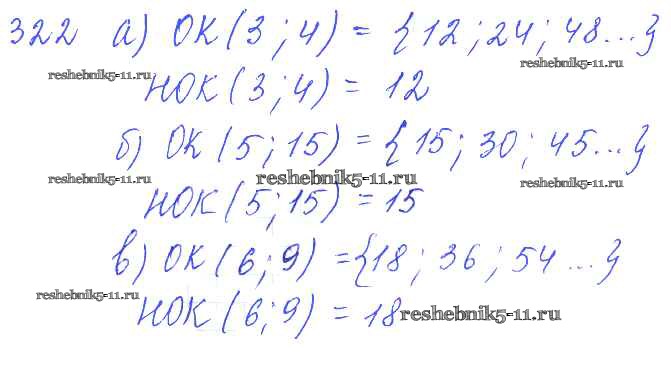 322 а) ОК(3;4) = {12;24;48...}
reshebnik5-11.ru reshebnik5-11.ru
НОК(3;4) = 12
б) ОК(5;15) = {15;30;45...}
reshebnik5-11.ru reshebnik5-11.ru reshebnik5-11.ru
НОК(5;15) = 15
в) ОК(6;9) = {18;36;54...}
reshebnik5-11.ru
НОК(6;9) = 18 reshebnik5-11.ru